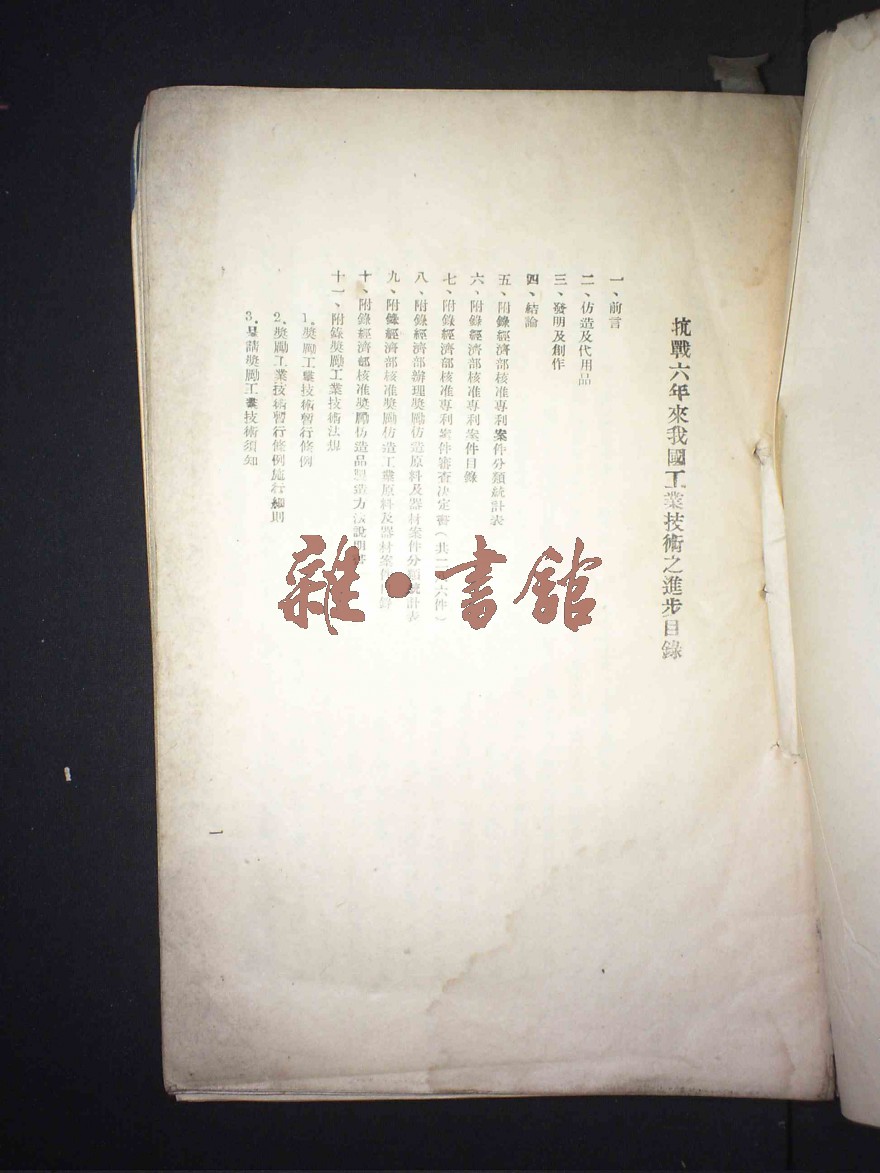 抗戰六年來我國工業技術之進步目錄
一、前言
二、仿造及代用品
三、發明及創作
四、結論
五、附錄經濟部核准專利案件分類統計表
六、附錄經濟部核准專利案件目錄
七、附錄經濟部核准專利案件審查決定書(共二 六件)
八、附錄經濟部辦理獎勵仿造原料及器材案件分類統計表
九、附錄經濟部核准獎勵仿造工業原料及器材案件 錄
十、附錄經濟部核准獎勵仿造品製造方法說明書
十一、附錄獎勵工業技術法規
1.獎勵工業技術暫行條例
2.獎勵工業技術暫行條例施行細則
3.呈請獎勵工業技術須知
一
雜·書館